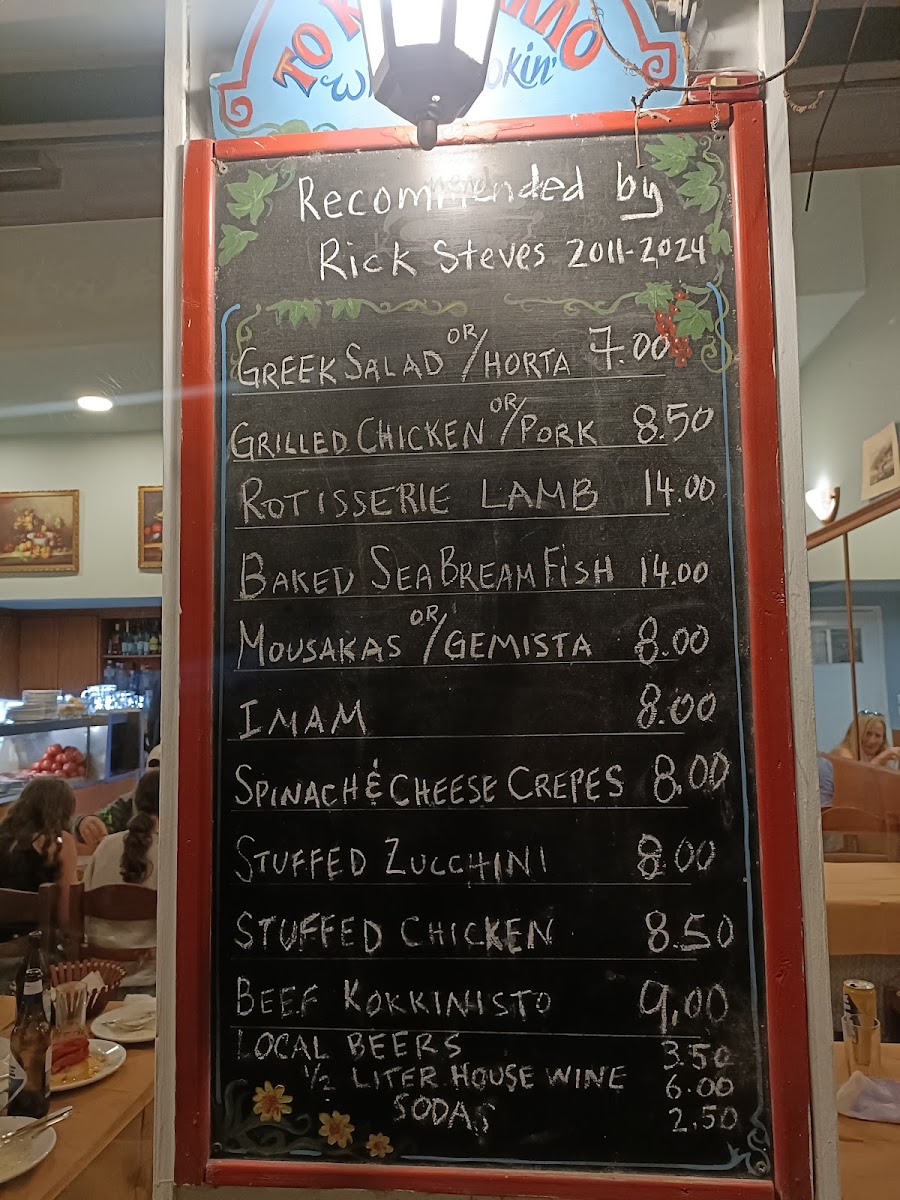 TO
Recommended by
Rick Steves 2011-2024
GREEK SALAD OR/HORTA 7.00
GRILLED CHICKEN OR/PORK 8.50
ROTISSERIE LAMB 14.00
BAKED SEA BREAM FISH 14.00
MOUSAKAS OR/GEMISTA 8.00
IMAM 8.00
SPINACH & CHEESE CREPES 8.00
STUFFED ZUCCHINI 8.00
STUFFED CHICKEN 8.50
BEEF KOKKINISTO 9,00
LOCAL BEERS 3.50
1/2 LITER HOUSE WINE 6.00
SODAS 2.50